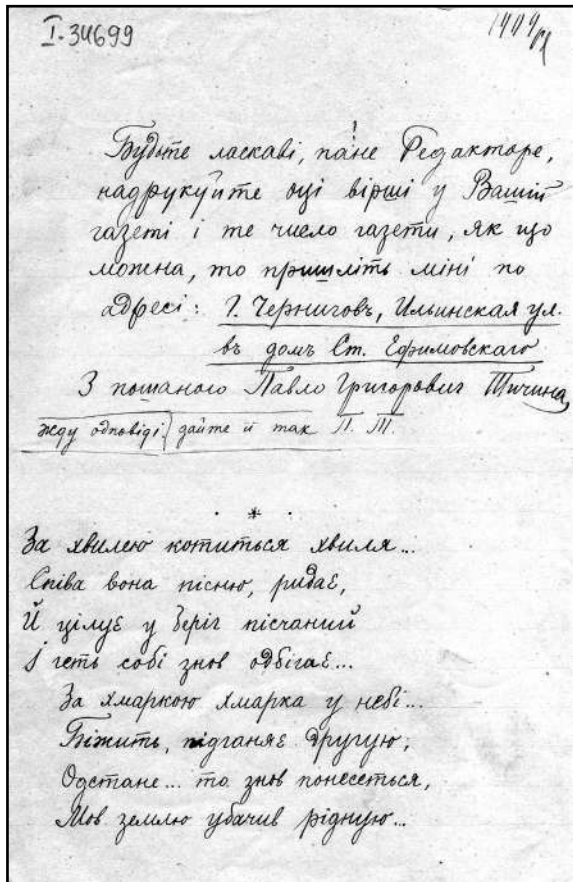 I.34699
1909
Будьте ласкаві, пане Редакторе,
надрукуйте оці вірші у Вашій
газеті і те число газети, як що
можна, то пришліть міні по
адресі: Г. Черниговъ, Ильинская ул.
въ домъ Ст. Ефимовскаго
З пошаною Павло Григорович Тичина
жду одповіді. дайте й так П. Т.
*
За хвилею котиться хвиля...
Співа вона пісню, ридає,
Й цілує у беріг пісчаний
І геть собі знов одбігає...
За хмаркою хмарка у небі...
Біжить, підганяє другую,
Одстане... то знов понесеться,
Мов землю убачив рідную...